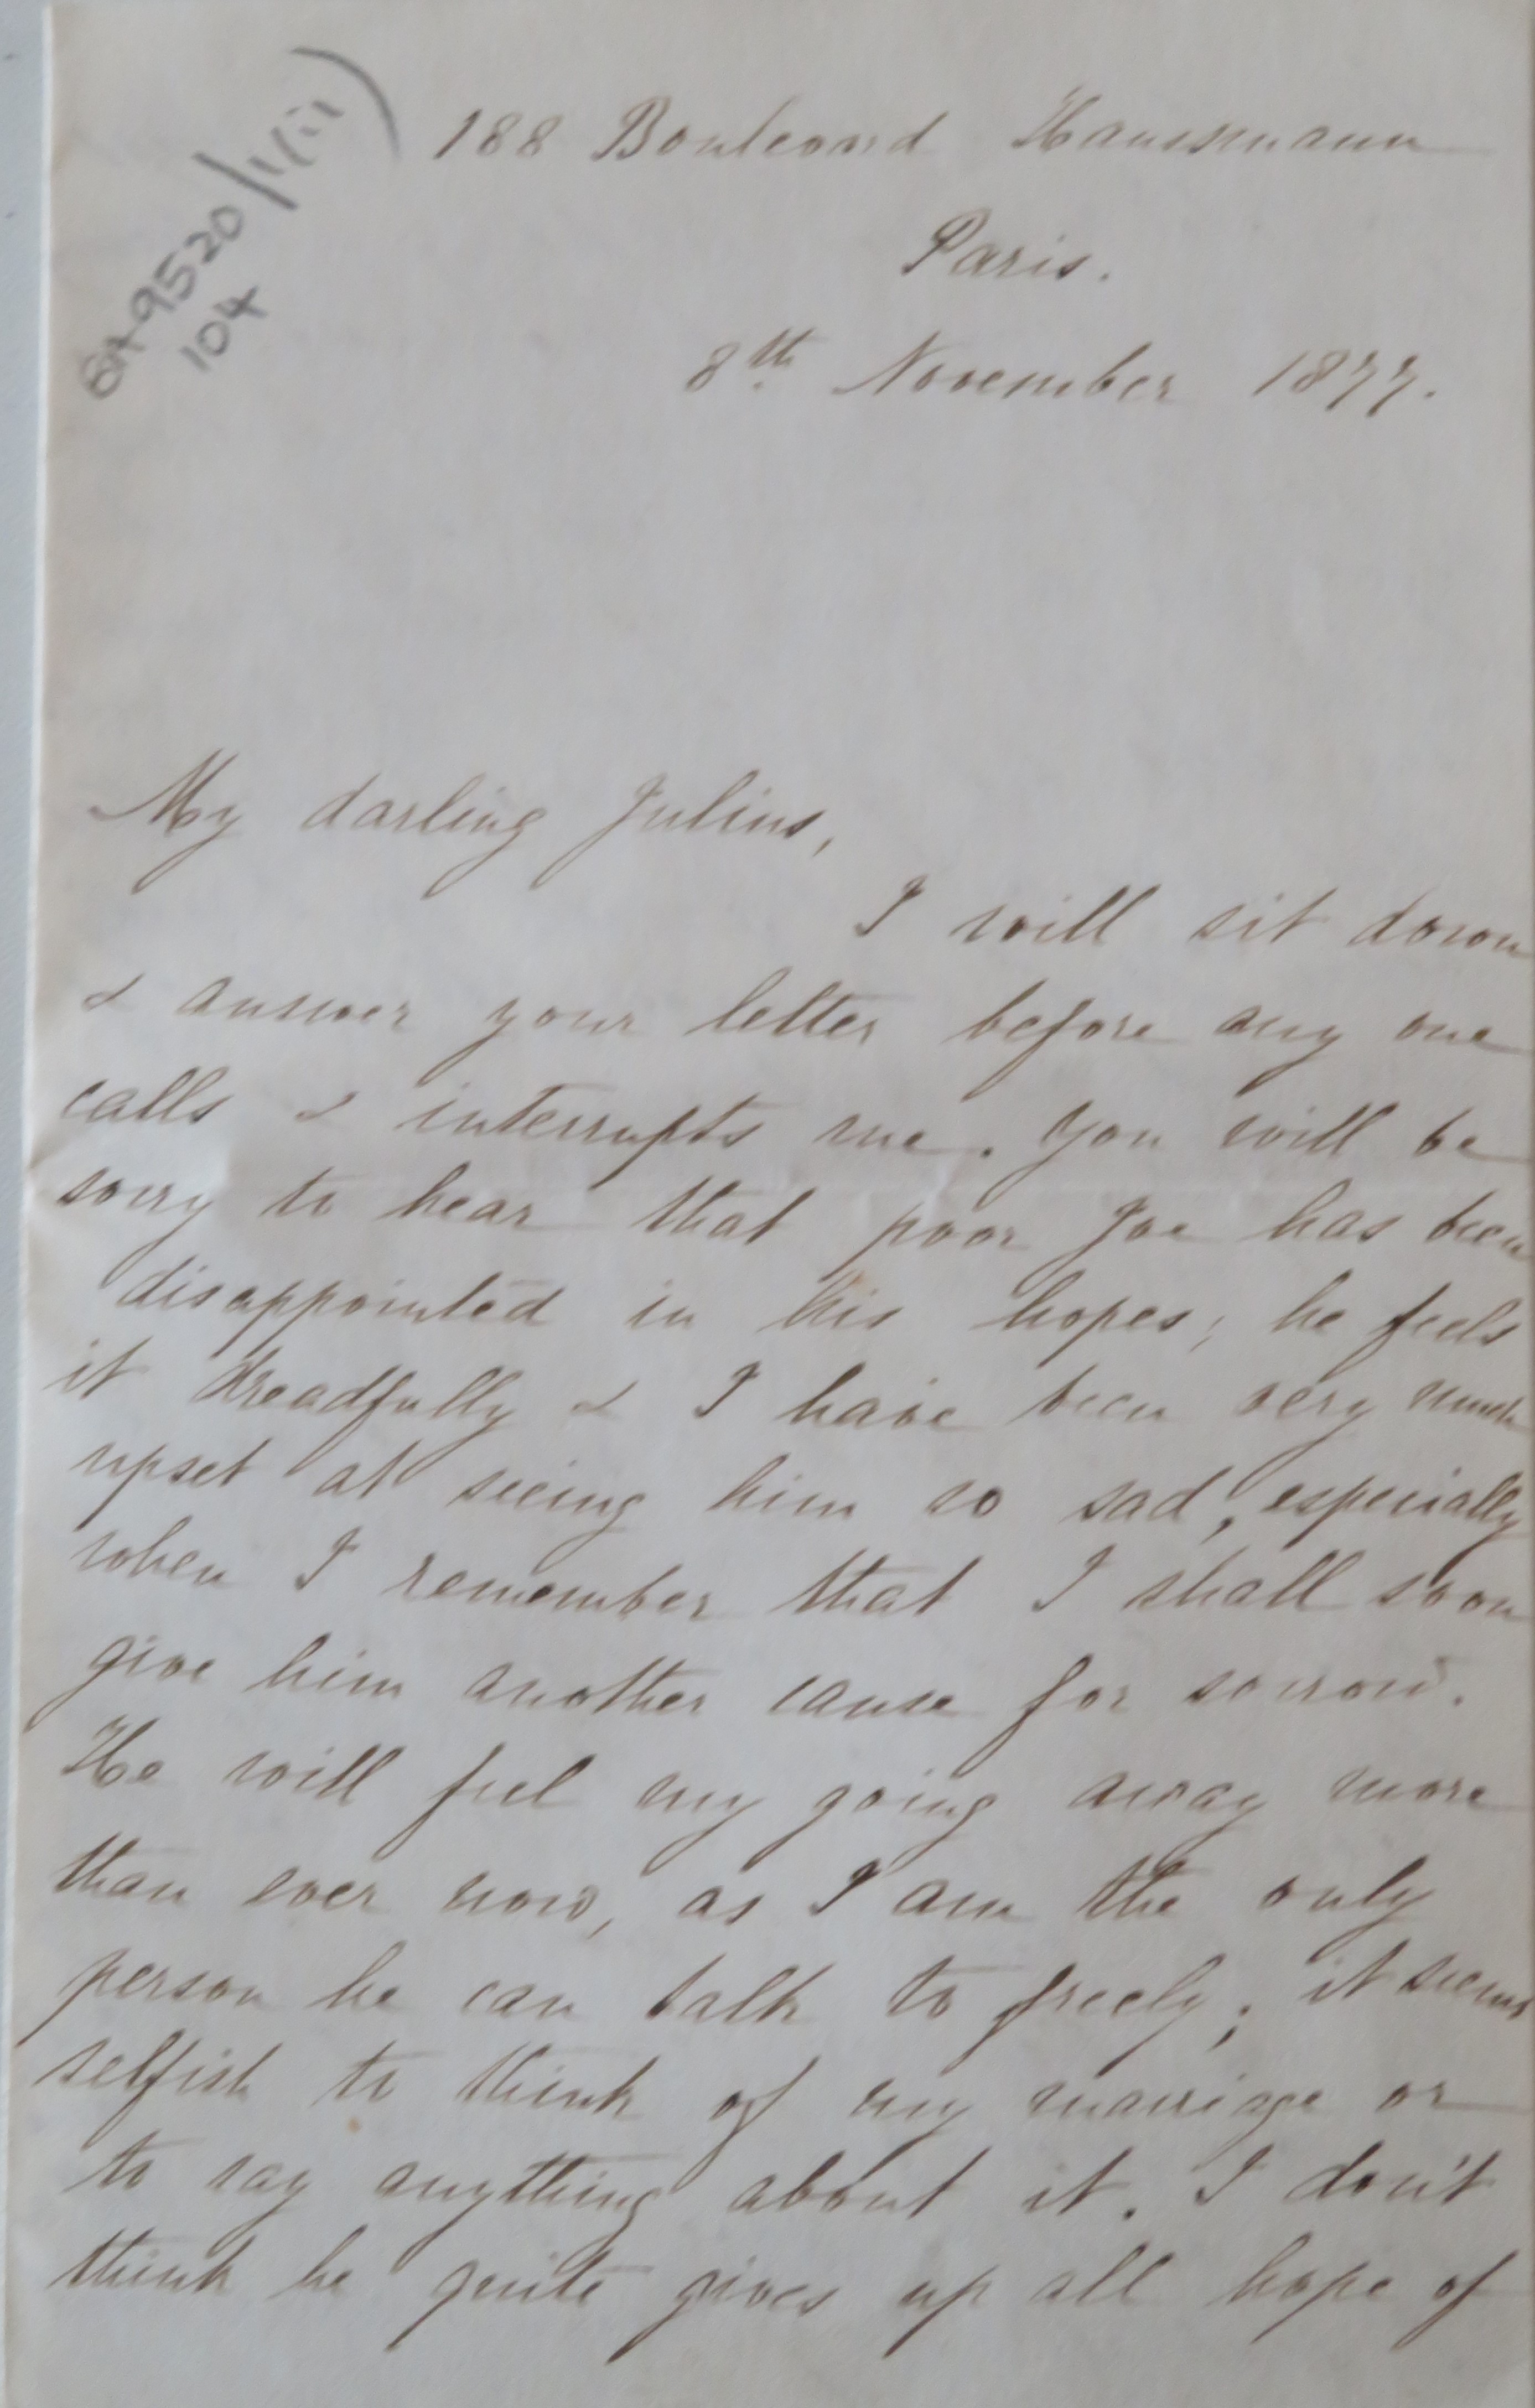 188 Boulevard Haussmann
Paris.
8th November 1877.
9520/1(ii)
104
My darling Julius,
I will sit down
& answer your letter before any one
calls & interrupts me. You will be
sorry to hear that poor Joe has been
disappointed in his hopes; he feels
it dreadfully & I have been very much
upset at seeing him so sad, especially
when I remember that I shall soon
give him another cause for sorrow.
He will feel my going away more
than ever now, as I am the only
person he can talk to freely; it seems
selfish to think of my marriage or
to say anything about it. I don't
think he quite gives up all hope of